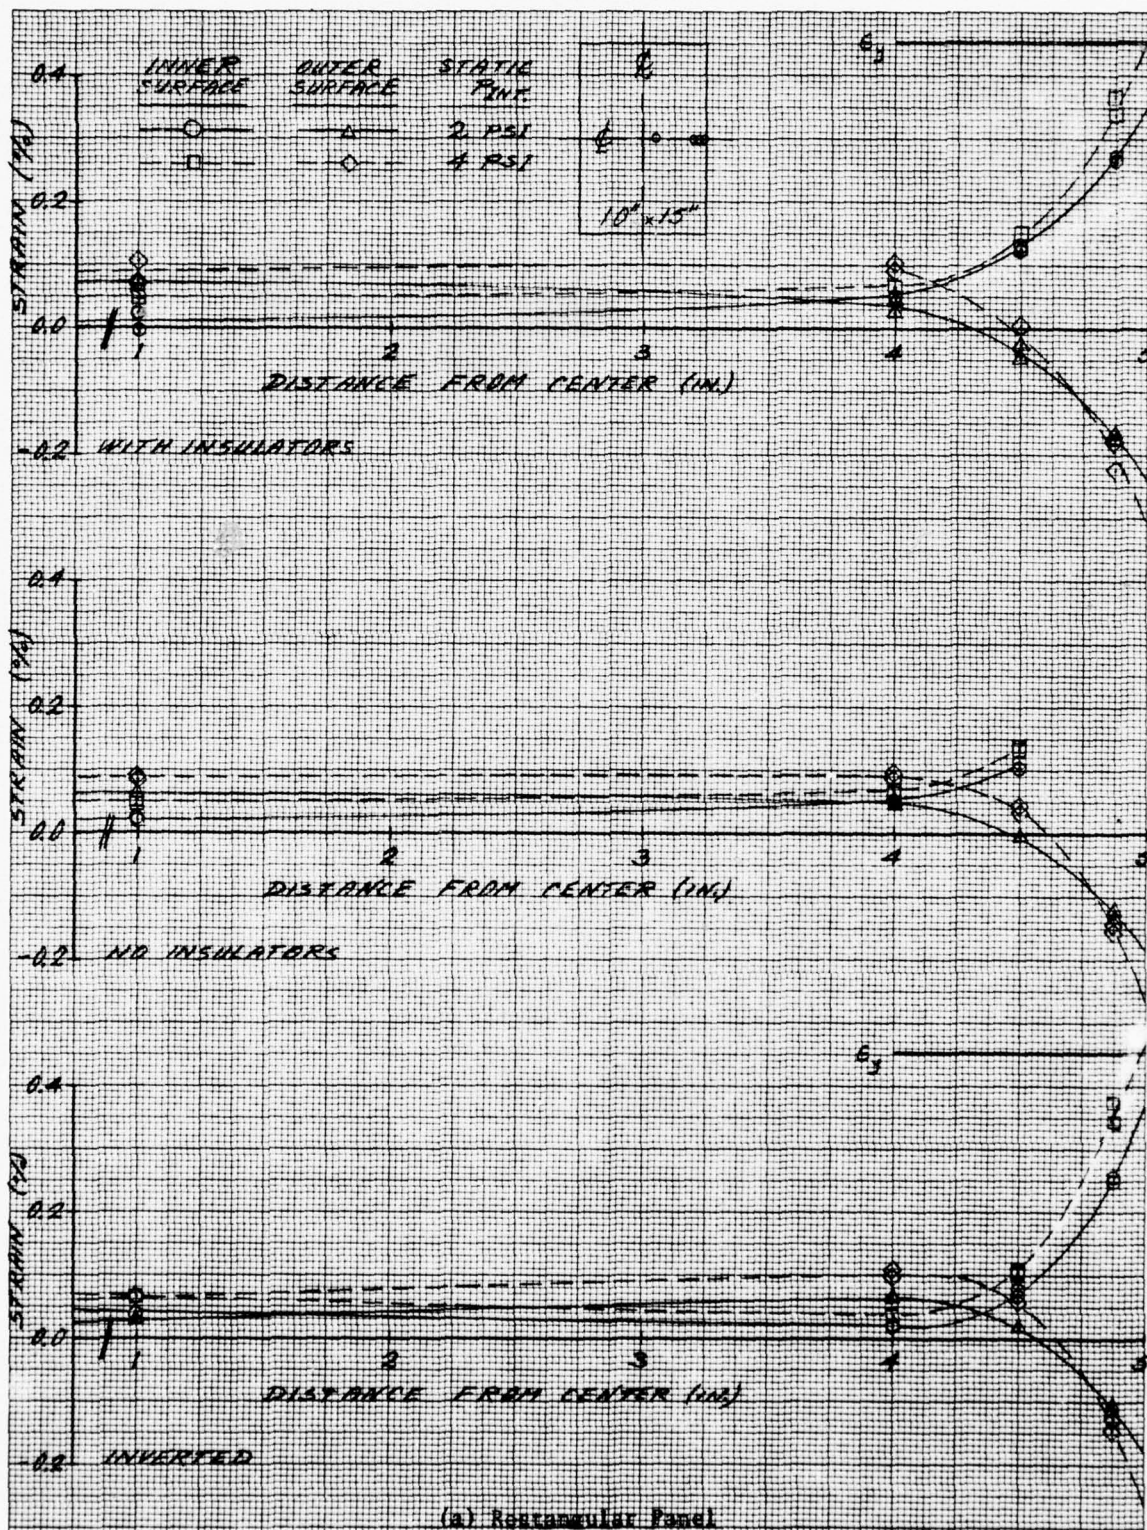 INNER SURFACE OUTER SURFACE STATIC PINT.
2 PSI
4 PSI
℄
℄
10" x 15"
εy
0.4
0.2
0.0
-0.2
STRAIN (%)
1 2 3 4 5
DISTANCE FROM CENTER (IN.)
WITH INSULATORS
0.4
0.2
0.0
-0.2
STRAIN (%)
1 2 3 4 5
DISTANCE FROM CENTER (IN.)
NO INSULATORS
εy
0.4
0.2
0.0
-0.2
STRAIN (%)
1 2 3 4 5
DISTANCE FROM CENTER (IN.)
INVERTED
(a) Rectangular Panel